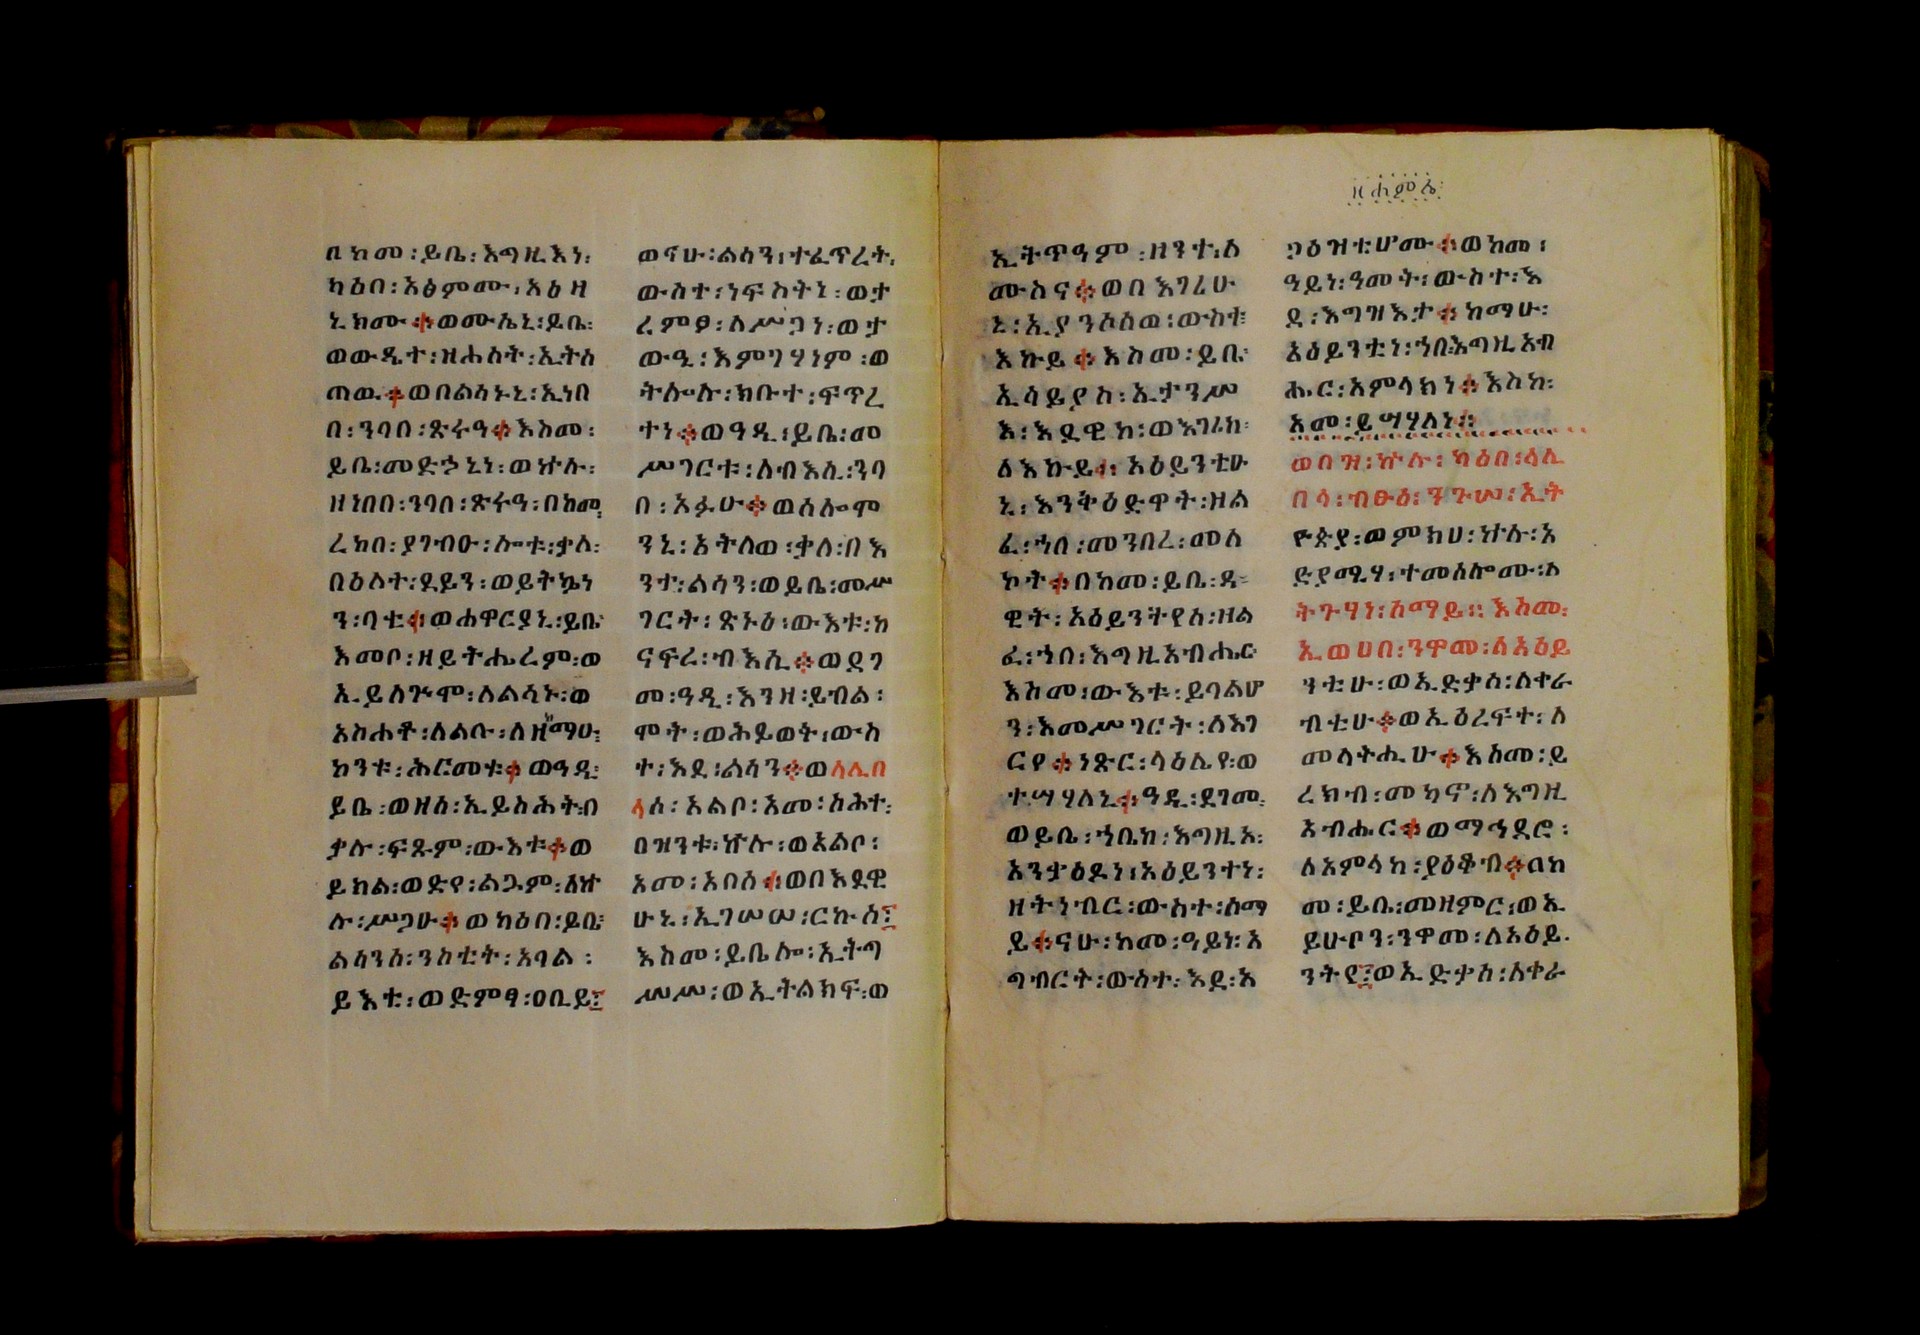 በከመ፡ይቤ፡እግዚእነ፡
ካዕበ፡አፅምሙ፡አፅዘ
ኒክሙ፨ወሙሴኒ፡ይቤ፡
ወውዴተ፡ዝሐሰት፡ኢትስ
ጠዉ፨ወበልሳኑኒ፡ኢነበ
በ፡ንባበ፡ጽሩዓ፨እስመ፡
ይቤ፡መድኃኒነ፡ወኵሉ፡
ዘነበበ፡ንባበ፡ጽሩዓ፡በከመ፡
ረከበ፡ያገብዑ፡ሎቱ፡ቃለ፡
በዕለተ፡ደይን፡ወይትኴነ
ን፡ባቲ፨ወሐዋርያኒ፡ይቤ፡
እመቦ፡ዘይትሔረም፡ወ
ኢይለጕሞ፡ለልሳኑ፡ወ
አስሐቶ፡ለልቡ፡ለዘከማሁ፡
ከንቱ፡ሕርመቱ፨ወዓዲ፡
ይቤ፡ወዘሰ፡ኢይስሕት፡በ
ቃሉ፡ፍጹም፡ውእቱ፨ወ
ይክል፡ወድየ፡ልጓም፡ለኵ
ሉ፡ሥጋሁ፨ወካዕበ፡ይቤ፡
ልሳንሰ፡ንስቲት፡አባል፡
ይእቲ፡ወድምፃ፡ዐቢይ፤
ወናሁ፡ልሳን፡ተፈጥረት፡
ውስተ፡ነፍስትነ፡ወታ
ረምፆ፡ለሥጋነ፡ወታ
ውዒ፡እምገሃነም፡ወ
ትሎሉ፡ክቡተ፡ፍጥረ
ተነ፨ወዓዲ፡ይቤ፡መ
ሥገርቱ፡ለብእሲ፡ንባ
በ፡አፉሁ፨ወሰሎሞ
ንኒ፡አትለወ፡ቃለ፡በእ
ንተ፡ልሳን፡ወይቤ፡መሥ
ገርት፡ጽኑዕ፡ውእቱ፡ከ
ናፍረ፡ብእሲ፨ወደገ
መ፡ዓዲ፡እንዘ፡ይብል፡
ሞት፡ወሕይወት፡ውስ
ተ፡እደ፡ልሳን፨ወሳሊበ
ላሰ፡አልቦ፡አመ፡ስሕተ፡
በዝንቱ፡ኵሉ፡ወአልቦ፡
አመ፡አበሰ፨ወበእደዊ
ሁኒ፡ኢገሠሠ፡ርኩሰ፤
እስመ፡ይቤሎ፡ኢትግ
ሥሥ፡ወኢትልክፍ፡ወ
ዘሐምሌ፡
ኢትጥዓም፡ዘንተ፡ስ
ሙስና፨ወበእገሪሁ
ኒ፡ኢያንሶሰወ፡ውስተ፡
እኩይ፨እስመ፡ይቤ፡
ኢሳይያስ፡ኢታንሥ
እ፡እደዊከ፡ወእገሪከ፡
ለእኩይ፨አዕይንቲሁ
ኒ፡እንቅዕድዋት፡ዘል
ፈ፡ኀበ፡መንበረ፡መስ
ኮት፨በከመ፡ይቤ፡ዳ
ዊት፡አዕይንትየሰ፡ዘል
ፈ፡ኀበ፡እግዚአብሔር፡
እስመ፡ውእቱ፡ይባልሆ
ን፡እመሥገርት፡ለእገ
ርየ፨ነጽር፡ላዕሌየ፡ወ
ተሣሃለኒ፨ዓዲ፡ደገመ፡
ወይቤ፡ኀቤከ፡እግዚኦ፡
አንቃዕደነ፡አዕይንተነ፡
ዘትነብር፡ውስተ፡ሰማ
ይ፨ናሁ፡ከመ፡ዓይነ፡አ
ግብርት፡ውስተ፡እደ፡አ
ጋዕዝቲሆሙ፨ወከመ፡
ዓይነ፡ዓመት፡ውስተ፡እ
ደ፡እግዝእታ፨ከማሁ፡
አዕይንቲነ፡ኀበ፡እግዚአብ
ሔር፡አምላክነ፨እስከ፡
አመ፡ይሣሃለነ፨
ወበዝ፡ኵሉ፡ካዕበ፡ሳሊ
በላ፡ብፁዕ፡ንጉሠ፡ኢት
ዮጵያ፡ወምክሀ፡ኵሉ፡አ
ድያሚሃ፡ተመሰሎሙ፡ለ
ትጉሃነ፡ሰማይ፡፡እስመ፡
ኢወሀበ፡ንዋመ፡ለአዕይ
ንቲሁ፡ወኢድቃሰ፡ለቀራ
ብቲሁ፨ወኢዕረፍተ፡ለ
መላትሒሁ፨እስመ፡ይ
ረክብ፡መካኖ፡ለእግዚ
አብሔር፨ወማኅደሮ፡
ለአምላከ፡ያዕቆብ፨በከ
መ፡ይቤ፡መዘምር፡ወኢ
ይሁቦን፡ንዋመ፡ለአዕይ
ንትየ፤ወኢድቃሰ፡ለቀራ